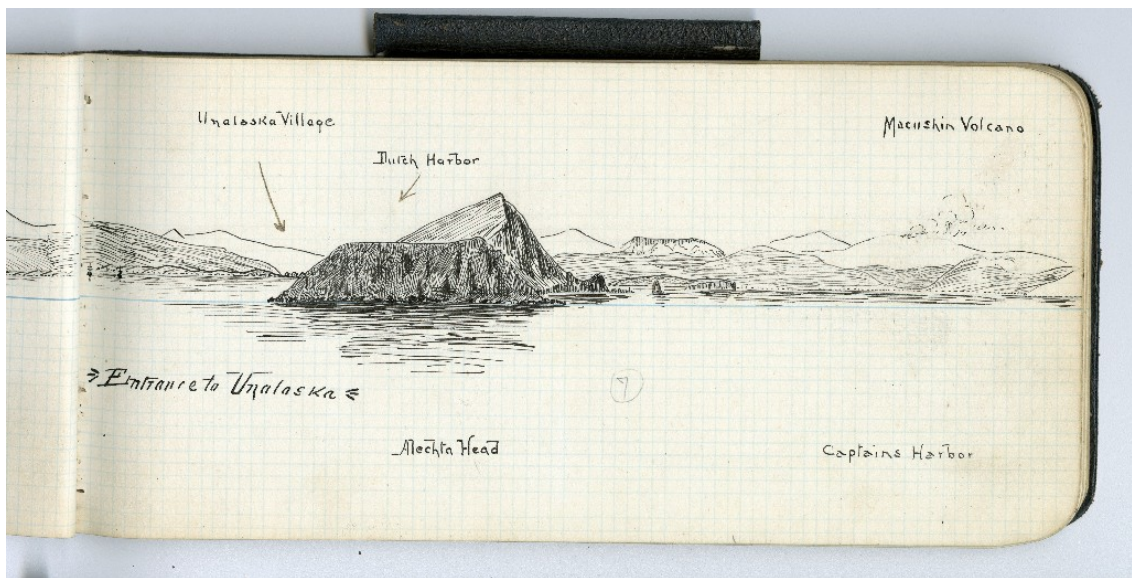 Unalaska Village
Dutch Harbor
Macushin Volcano
Entrance to Unalaska
7
Captains Harbor